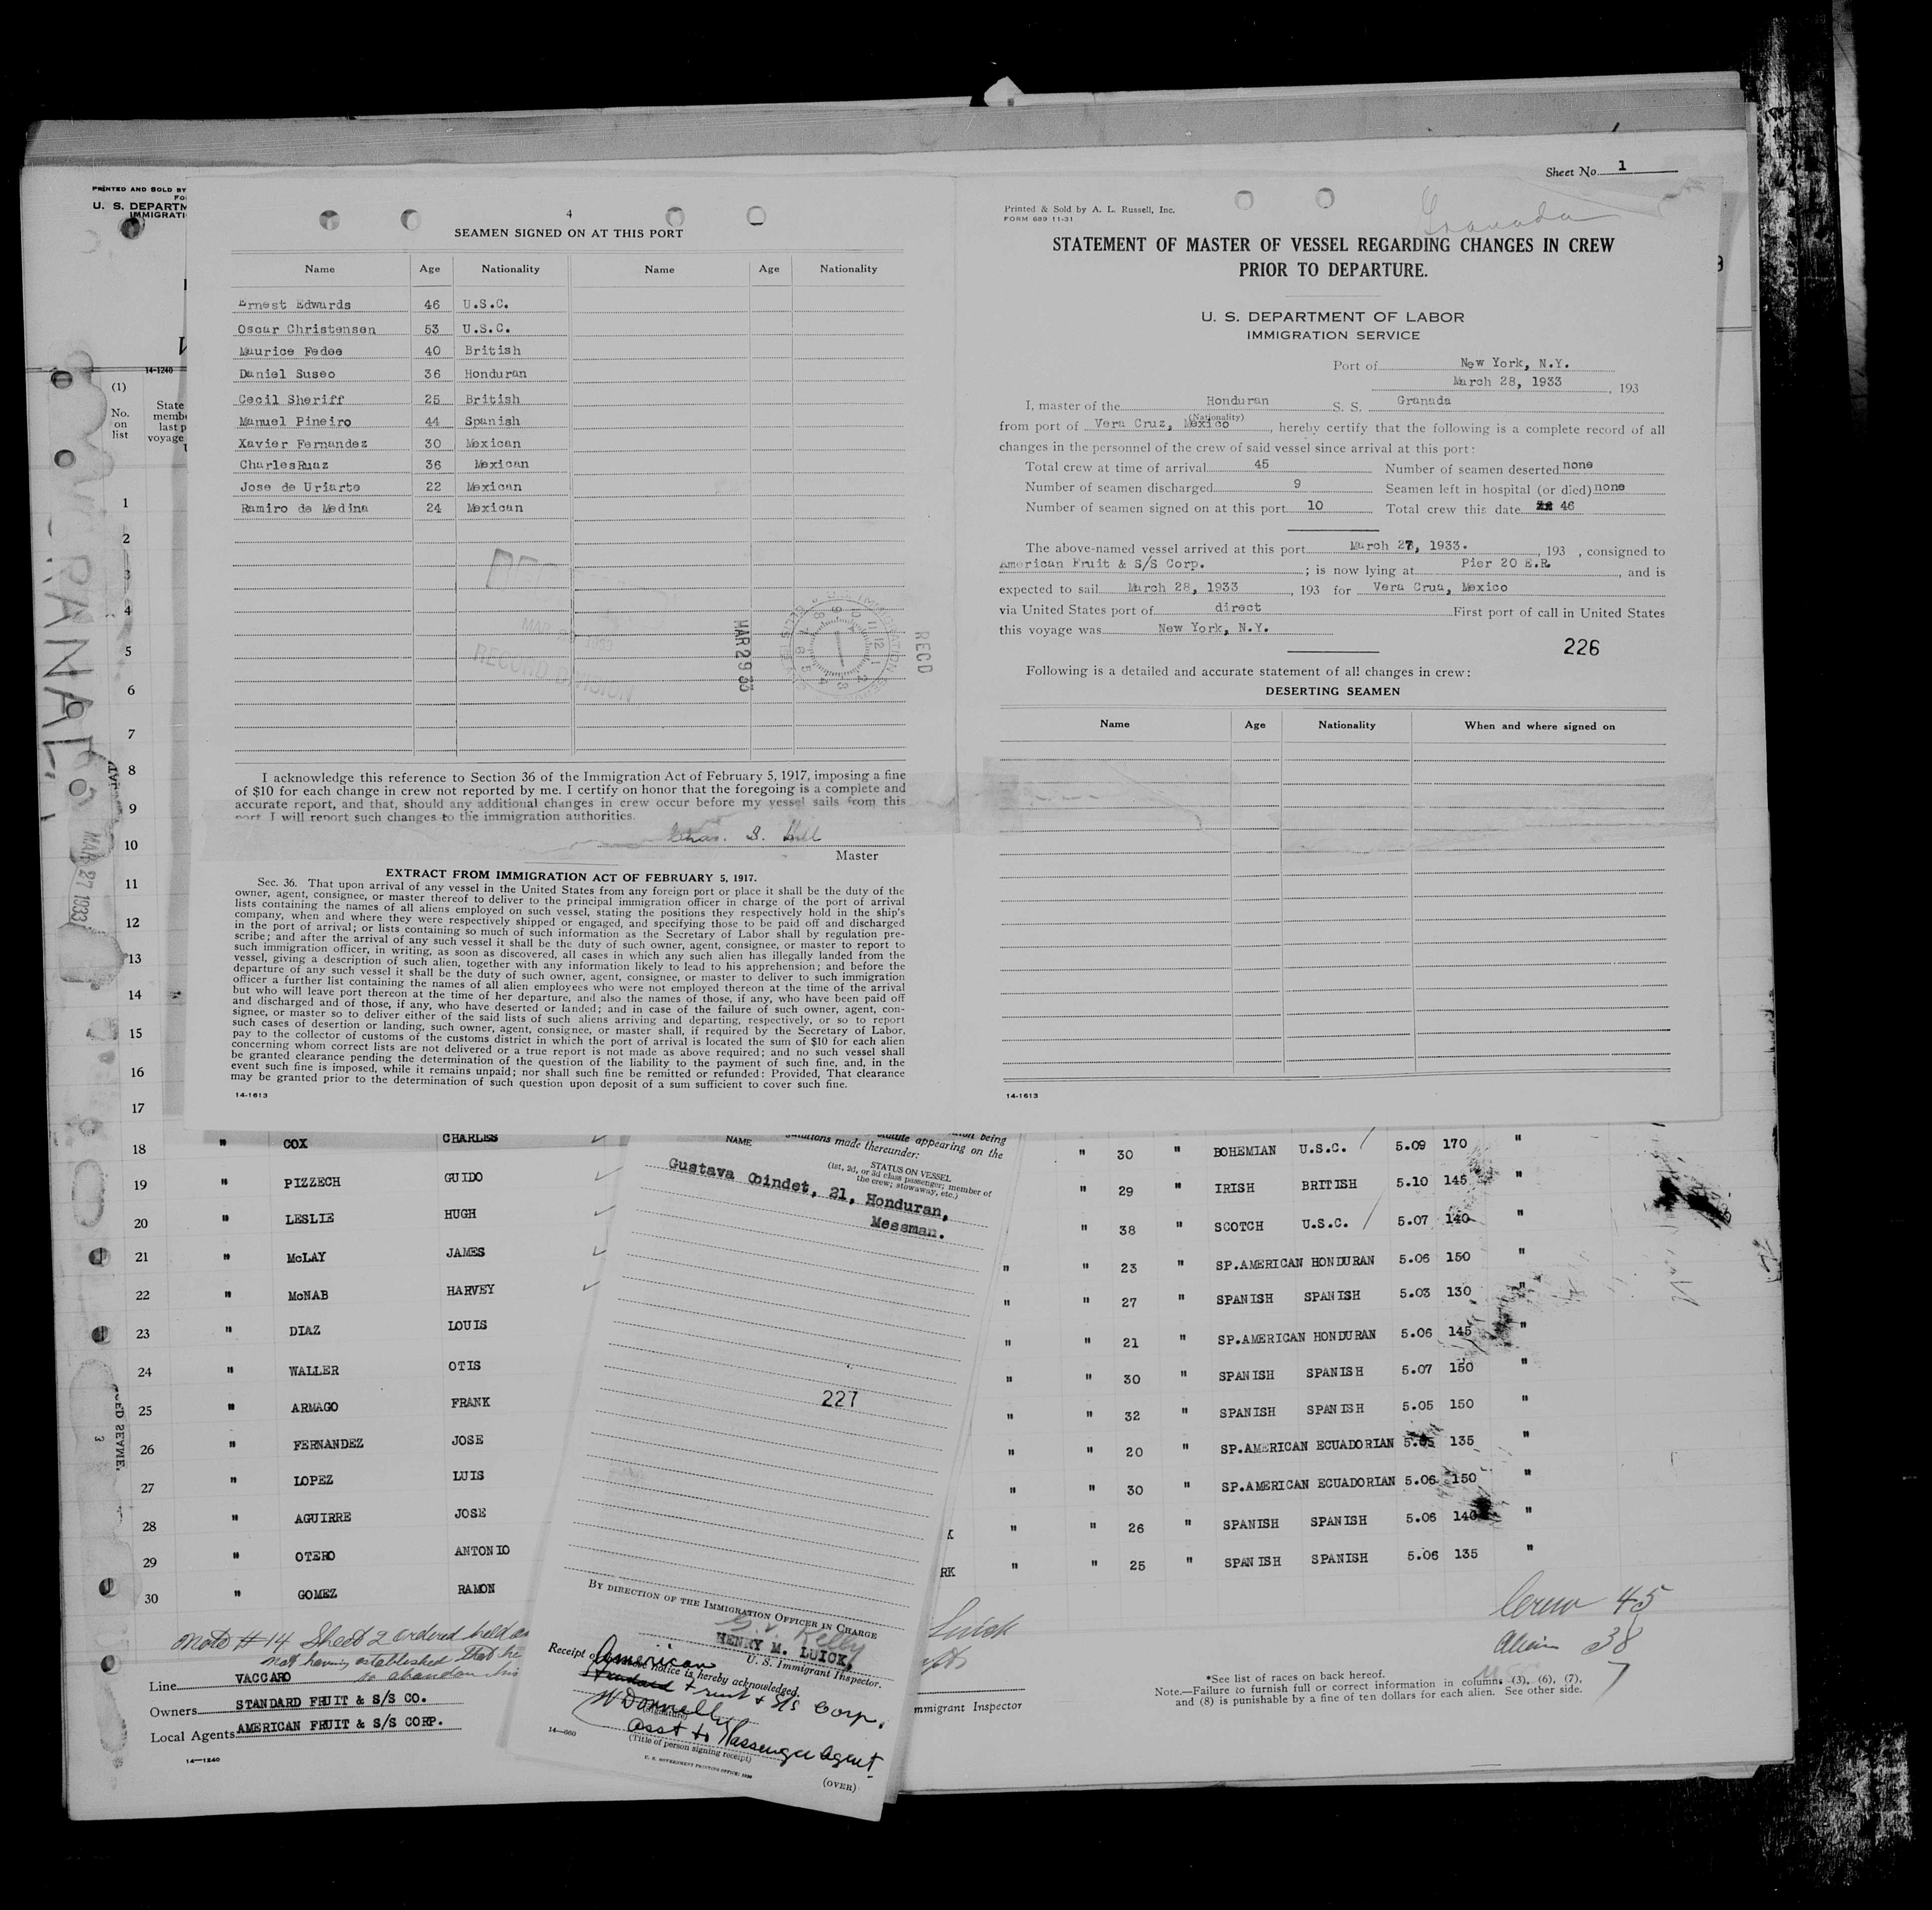 Sheet No. 1
PRINTED AND SOLD BY
U. S. DEPARTM
IMMIGRATI
14-1240
(1)
No.
on
list
State
membe
last p
voyage
1
2
4
5
6
7
8
9
10
11
12
13
14
15
16
17
MAR 27 1933
4
SEAMEN SIGNED ON AT THIS PORT
Name Age Nationality Name Age Nationality
Ernest Edwards 46 U.S.C.
Oscar Christensen 53 U.S.C.
Maurice Fedee 40 British
Daniel Suseo 36 Honduran
Cecil Sheriff 25 British
Manuel Pineiro 44 Spanish
Xavier Fernandez 30 Mexican
CharlesRuaz 36 Mexican
Jose de Uriarte 22 Mexican
Ramiro de Medina 24 Mexican
RECORD DIVISION
MAR 29 33
RECD
I acknowledge this reference to Section 36 of the Immigration Act of February 5, 1917, imposing a fine
of $10 for each change in crew not reported by me. I certify on honor that the foregoing is a complete and
accurate report, and that, should any additional changes in crew occur before my vessel sails from this
port I will report such changes to the immigration authorities.
Chas. S. Hill
Master
EXTRACT FROM IMMIGRATION ACT OF FEBRUARY 5, 1917.
Sec. 36. That upon arrival of any vessel in the United States from any foreign port or place it shall be the duty of the
owner, agent, consignee, or master thereof to deliver to the principal immigration officer in charge of the port of arrival
lists containing the names of all aliens employed on such vessel, stating the positions they respectively hold in the ship's
company, when and where they were respectively shipped or engaged, and specifying those to be paid off and discharged
in the port of arrival; or lists containing so much of such information as the Secretary of Labor shall by regulation pre-
scribe; and after the arrival of any such vessel it shall be the duty of such owner, agent, consignee, or master to report to
such immigration officer, in writing, as soon as discovered, all cases in which any such alien has illegally landed from the
vessel, giving a description of such alien, together with any information likely to lead to his apprehension; and before the
departure of any such vessel it shall be the duty of such owner, agent, consignee, or master to deliver to such immigration
officer a further list containing the names of all alien employees who were not employed thereon at the time of the arrival
but who will leave port thereon at the time of her departure, and also the names of those, if any, who have been paid off
and discharged and of those, if any, who have deserted or landed; and in case of the failure of such owner, agent, con-
signee, or master so to deliver either of the said lists of such aliens arriving and departing, respectively, or so to report
such cases of desertion or landing, such owner, agent, consignee, or master shall, if required by the Secretary of Labor,
pay to the collector of customs of the customs district in which the port of arrival is located the sum of $10 for each alien
concerning whom correct lists are not delivered or a true report is not made as above required; and no such vessel shall
be granted clearance pending the determination of the question of the liability to the payment of such fine, and, in the
event such fine is imposed, while it remains unpaid; nor shall such fine be remitted or refunded: Provided, That clearance
may be granted prior to the determination of such question upon deposit of a sum sufficient to cover such fine.
14-1613
Printed & Sold by A. L. Russell, Inc.
FORM 689 11-31
Granada
STATEMENT OF MASTER OF VESSEL REGARDING CHANGES IN CREW
PRIOR TO DEPARTURE.
U. S. DEPARTMENT OF LABOR
IMMIGRATION SERVICE
Port of New York, N.Y.
March 28, 1933, 193
I, master of the Honduran S. S. Granada
(Nationality)
from port of Vera Cruz, Mexico, hereby certify that the following is a complete record of all
changes in the personnel of the crew of said vessel since arrival at this port:
Total crew at time of arrival 45 Number of seamen deserted none
Number of seamen discharged 9 Seamen left in hospital (or died) none
Number of seamen signed on at this port 10 Total crew this date 46
The above-named vessel arrived at this port March 27, 1933., 193 , consigned to
American Fruit & S/S Corp. ; is now lying at Pier 20 E.R., and is
expected to sail March 28, 1933, 193 for Vera Crua, Mexico
via United States port of direct First port of call in United States
this voyage was New York, N.Y.
226
Following is a detailed and accurate statement of all changes in crew:
DESERTING SEAMEN
Name Age Nationality When and where signed on
14-1613
18 " COX CHARLES " 30 " BOHEMIAN U.S.C. 5.09 170 "
19 " PIZZECH GUIDO " 29 " IRISH BRITISH 5.10 145 "
20 " LESLIE HUGH " 38 " SCOTCH U.S.C. 5.07 140 "
21 " McLAY JAMES " " 23 " SP.AMERICAN HONDURAN 5.06 150 "
22 " McNAB HARVEY " " 27 " SPANISH SPANISH 5.03 130 "
23 " DIAZ LOUIS " " 21 " SP.AMERICAN HONDURAN 5.06 145 "
24 " WALLER OTIS " " 30 " SPANISH SPANISH 5.07 150 "
25 " ARMAGO FRANK " " 32 " SPANISH SPANISH 5.05 150 "
26 " FERNANDEZ JOSE " " 20 " SP.AMERICAN ECUADORIAN 5.05 135 "
27 " LOPEZ LUIS " " 30 " SP.AMERICAN ECUADORIAN 5.06 150 "
28 " AGUIRRE JOSE K " " 26 " SPANISH SPANISH 5.06 140 "
29 " OTERO ANTONIO RK " " 25 " SPANISH SPANISH 5.06 135 "
30 " GOMEZ RAMON
being
statute appearing on the
made thereunder:
NAME
STATUS ON VESSEL
(1st, 2d, or 3d class passenger; member of
the crew; stowaway, etc.)
Gustava Obindet, 21, Honduran,
Messman.
227
BY DIRECTION OF THE IMMIGRATION OFFICER IN CHARGE
Kelly
HENRY M. LUICK,
U. S. Immigrant Inspector.
Receipt of above notice is hereby acknowledged.
American
Fruit & S/S Corp.
W Donnelly
(Signature)
Asst to Passenger Agent
(Title of person signing receipt)
14—660
U. S. GOVERNMENT PRINTING OFFICE
(OVER)
Note #14 Sheet 2 ordered held as
not having established that he
to abandon his
Line VACCARO
Owners STANDARD FRUIT & S/S CO.
Local Agents AMERICAN FRUIT & S/S CORP.
14—1240
Luick
Immigrant Inspector
Crew 45
Alien 38
7
*See list of races on back hereof.
Note.—Failure to furnish full or correct information in columns (3), (6), (7),
and (8) is punishable by a fine of ten dollars for each alien. See other side.